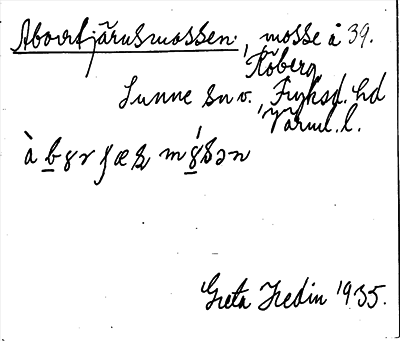 Abborrtjärnsmossen, mosse å 39.
Röberg
Sunne sn v., Fryksd. hd
Värml. l.
Greta Hedin 1935.